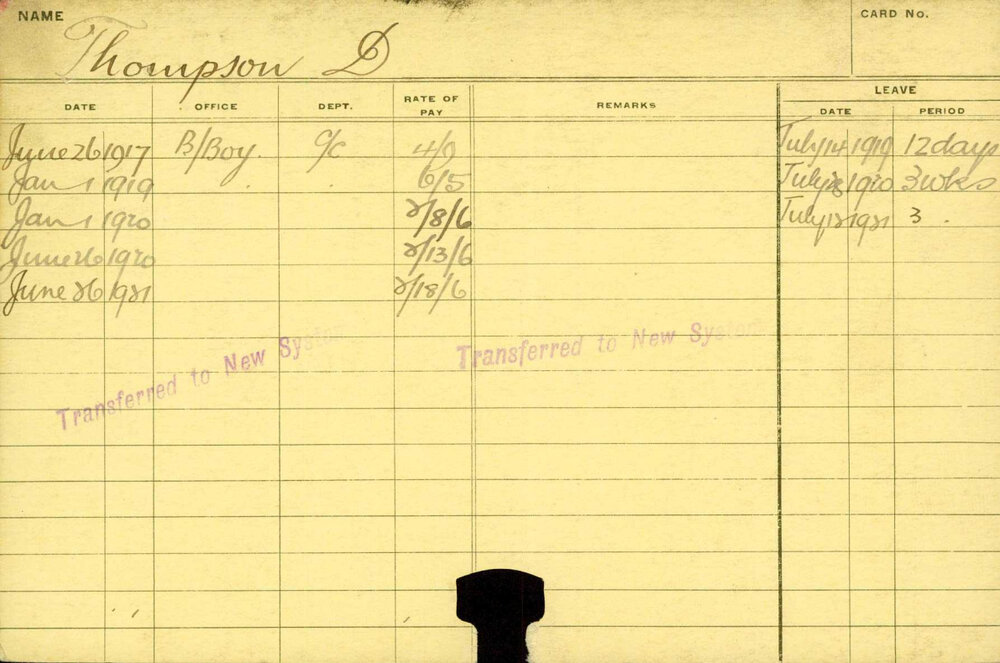 NAME
Thompson D
CARD No.
DATE OFFICE DEPT. RATE OF PAY REMARKS LEAVE
DATE PERIOD
June 26 1917 B/Boy. c/c 4/9 July 14 1919 12 days
Jan 1 1919 6/5 July 1920 3 wks
Jan 1 1920 2/8/6 July 12 1921 3
June 26 1920 2/13/6
June 26 1921 2/18/6
Transferred to New System
Transferred to New System